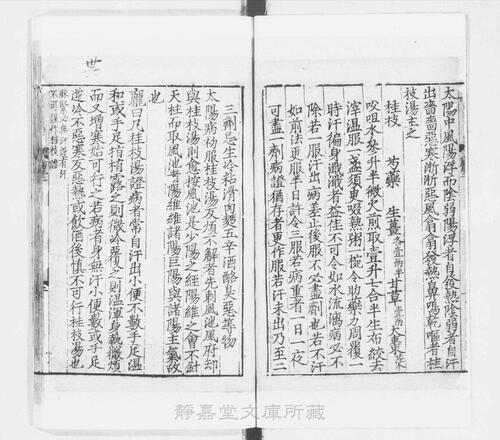 太陽中風陽浮而陰弱陽浮者自發熱陰弱者自汗
出嗇嗇惡寒淅淅惡風翕翕發熱鼻鳴乾嘔者桂
枝湯主之
桂枝 芍藥 生薑各壹兩半 甘草壹兩 大棗陸枚
㕮咀水參升半微火煎取壹升七合半生布絞去
滓溫服一盞須臾啜熱粥一椀令助藥力周覆一
時汗徧身漐漐者益佳不可令如水流漓病必不
除若一服汗出病差止後服不必盡劑也若不汗
如前法更服半日許令三服若病重者一日一夜
可盡一劑病證猶存者更作服若汗未出乃至二
三劑忌生冷粘滑肉麪五辛酒酪臭惡等物
太陽病初服桂枝湯反煩不解者先刺風池風府却
與桂枝湯則愈按風池是少陽之經陽維之會不針
天柱而取風池者陽維維諸陽巨陽與諸陽主氣故
也
龐曰凡桂枝湯證病者常自汗出小便不數手足溫
和或手足指稍露之則微冷覆之則溫渾身熱微煩
而又增寒始可行之若病者身無汗小便數或手足
逆冷不惡寒反惡熱或飲酒後慎不可行桂枝湯也
脉緊必無汗設有汗
不可誤作桂枝證
卅
靜嘉堂文庫所藏